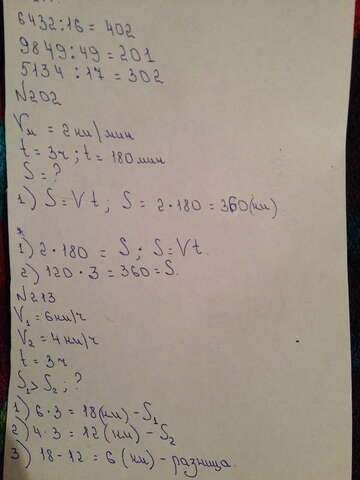 6432:16 = 402
9849:49 = 201
5134:17 = 302
N202
Vм = 2км/мин
t = 3ч; t = 180мин
S = ?
1) S = Vt; S = 2·180 = 360(км)
*
1) 2·180 = S; S = Vt.
2) 120·3 = 360 = S.
N213
V1 = 6км/ч
V2 = 4км/ч
t = 3ч
S1 > S2; ?
1) 6·3 = 18(км) - S1
2) 4·3 = 12(км) - S2
3) 18-12 = 6(км) - разница.